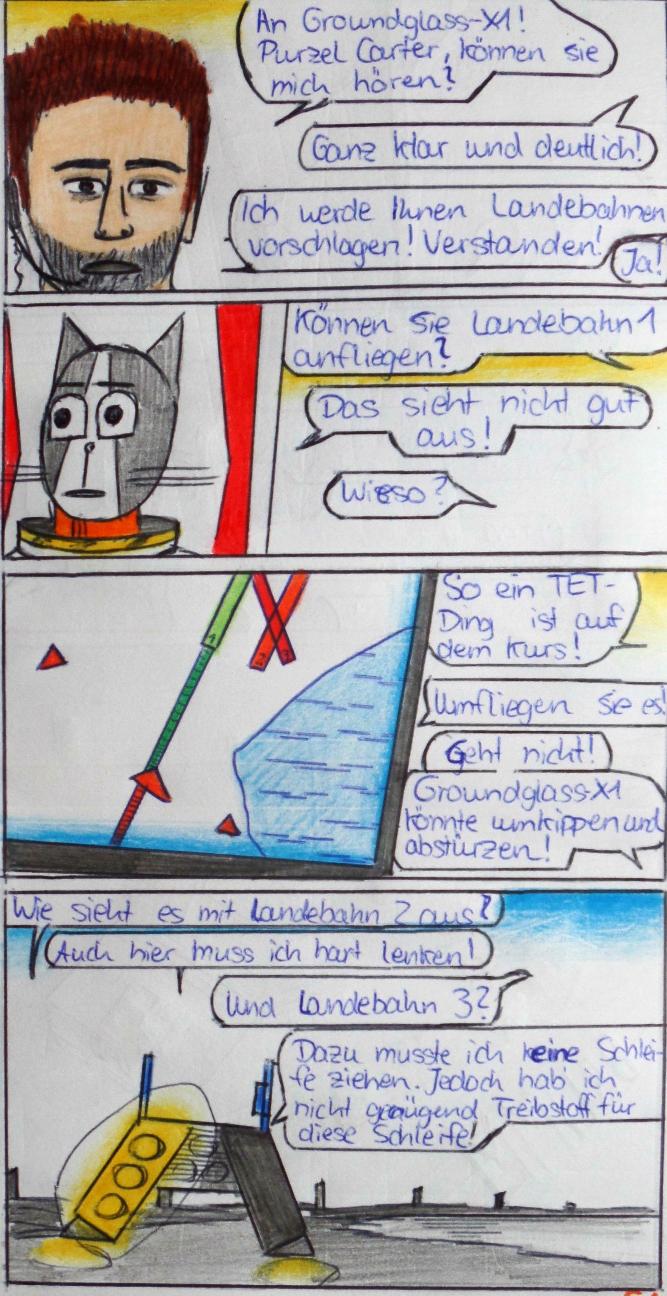 An Groundglass-X1!
Purzel Carter, können sie
mich hören?
Ganz klar und deutlich!
Ich werde Ihnen Landebahnen
vorschlagen! Verstanden!
Ja!
Können Sie Landebahn 1
anfliegen?
Das sieht nicht gut
aus!
Wieso?
So ein TET-
Ding ist auf
dem Kurs!
Umfliegen Sie es!
Geht nicht!
Groundglass-X1
könnte umkippen und
abstürzen!
Wie sieht es mit Landebahn 2 aus?
Auch hier muss ich hart lenken!
Und Landebahn 3?
Dazu musste ich keine Schlei-
fe ziehen. Jedoch hab' ich
nicht genügend Treibstoff für
diese Schleife!